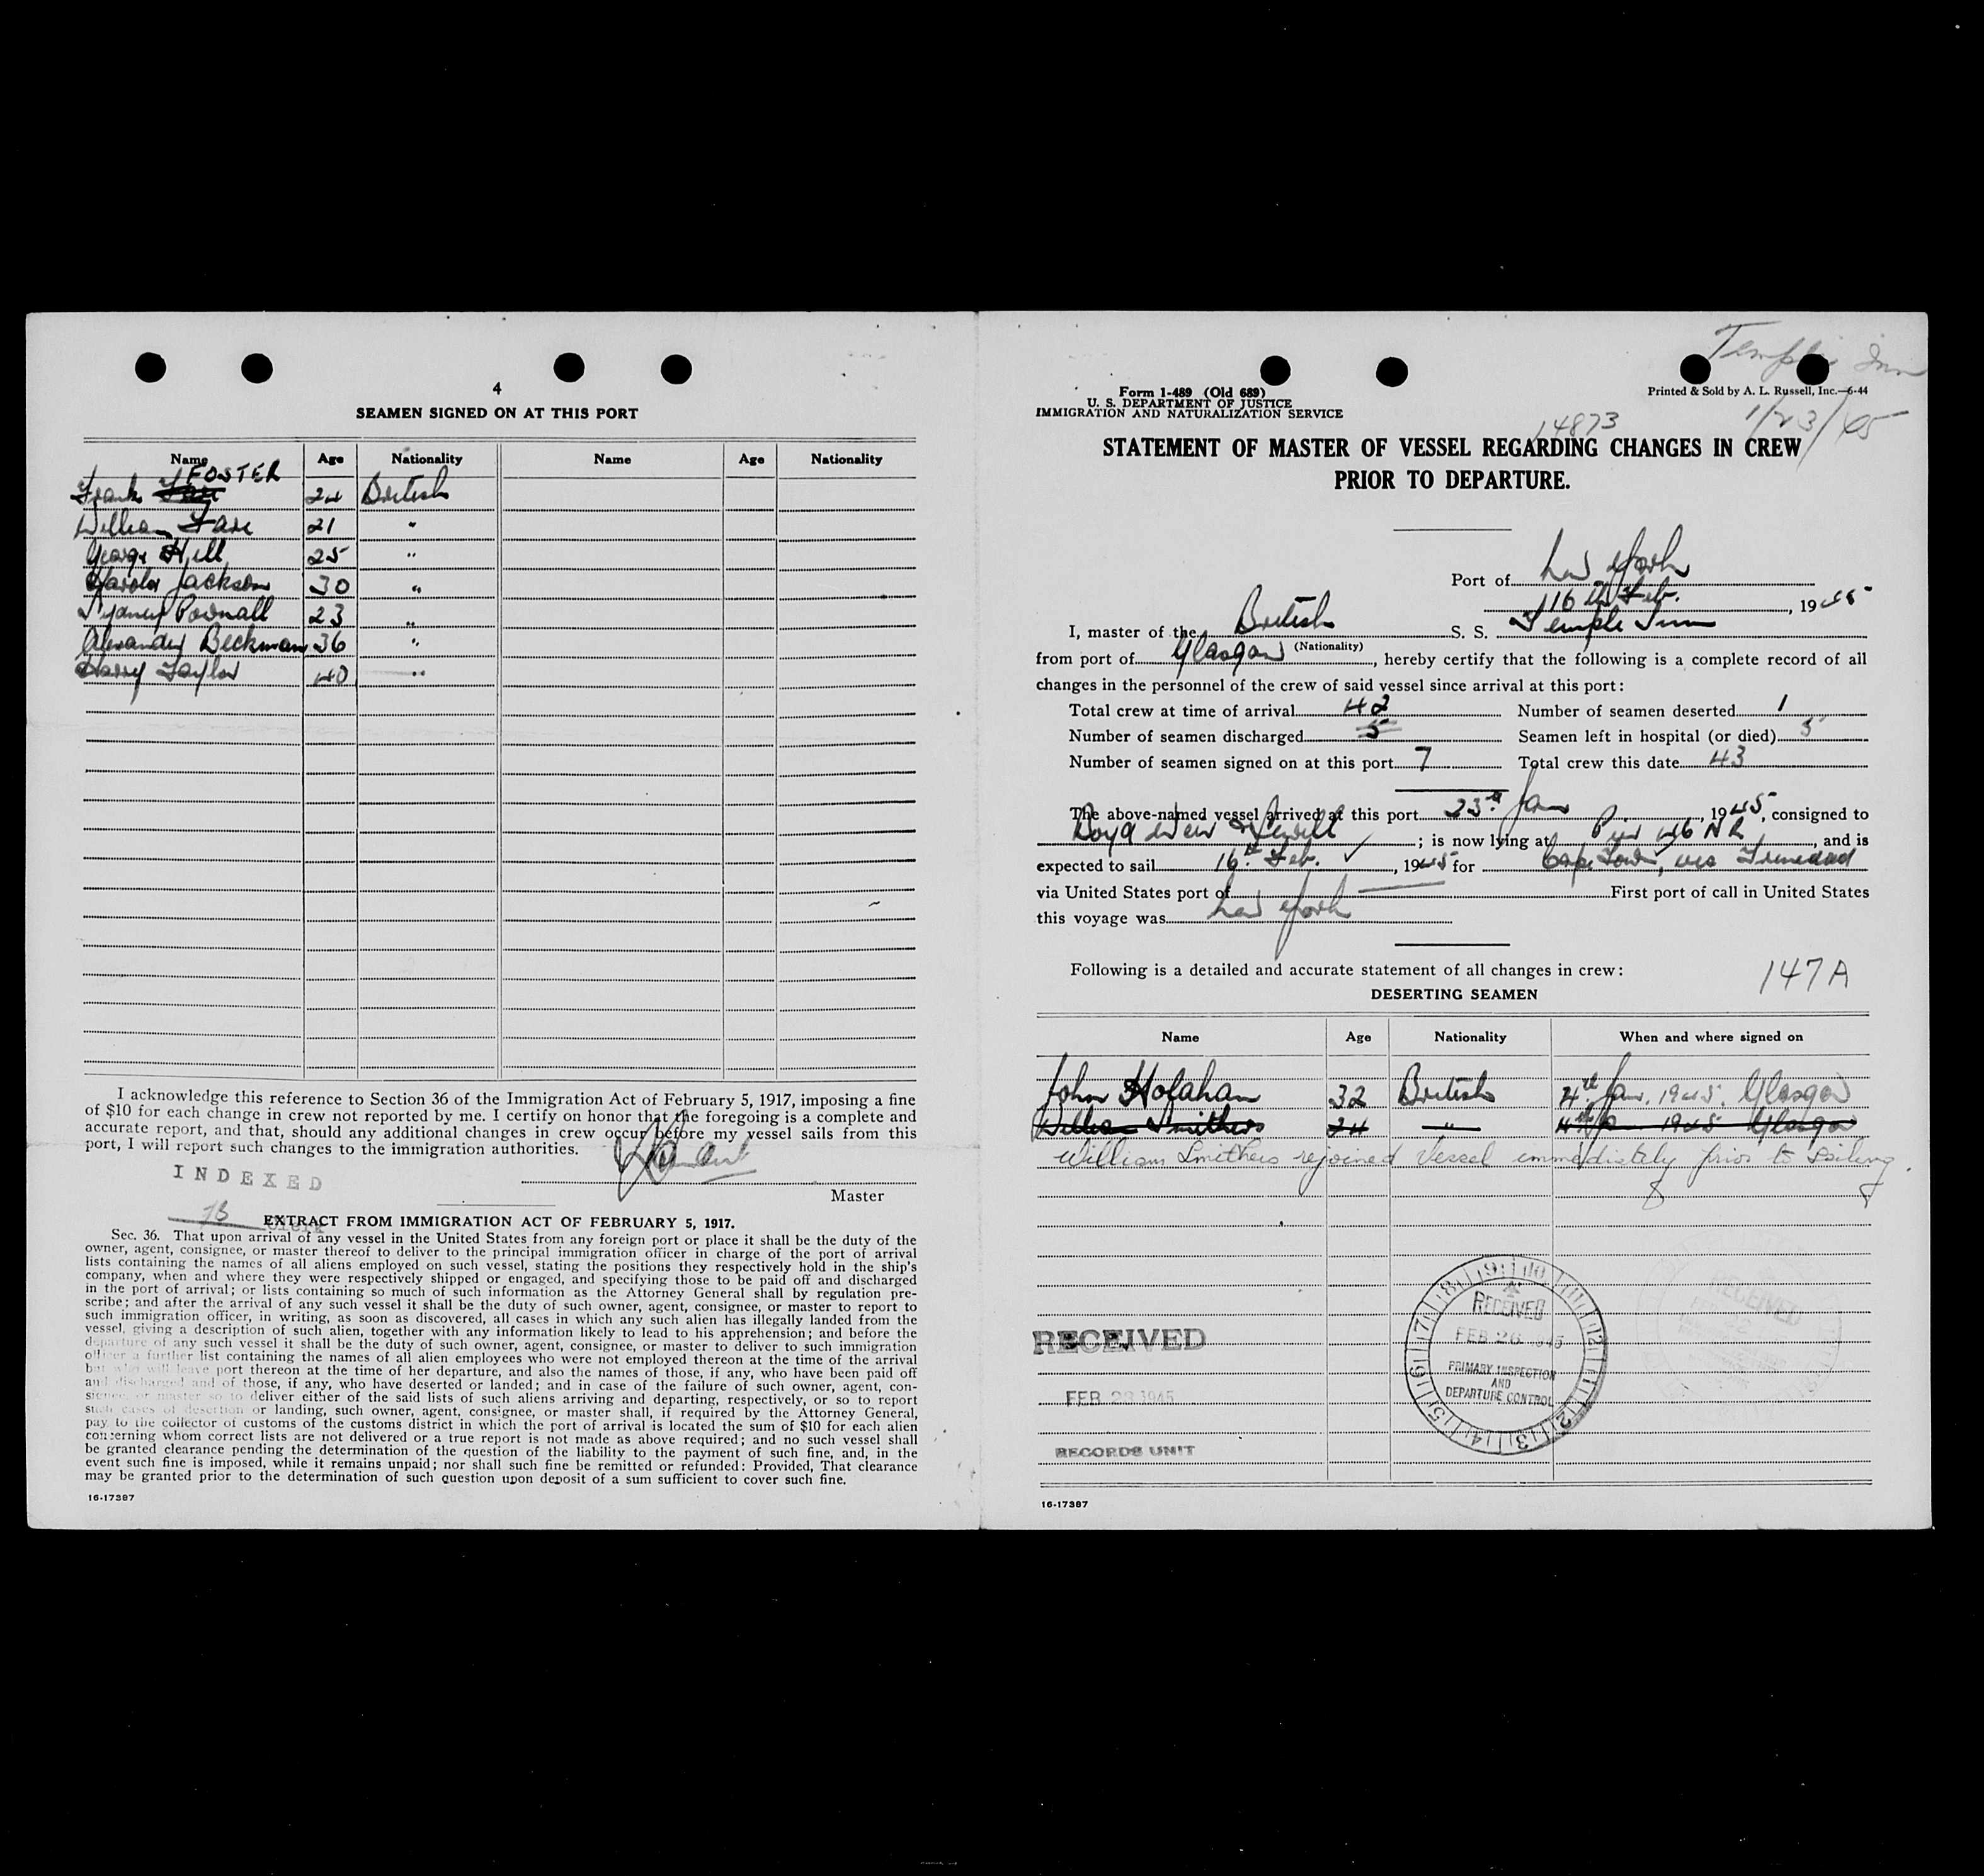 4
SEAMEN SIGNED ON AT THIS PORT
Name Age Nationality Name Age Nationality
FOSTER
Frank 24 British
William Fare 21 "
George Hill 25 "
Harold Jackson 30 "
Sydney Pownall 23 "
Alexander Beckman 36 "
Harry Taylor 40 "
I acknowledge this reference to Section 36 of the Immigration Act of February 5, 1917, imposing a fine
of $10 for each change in crew not reported by me. I certify on honor that the foregoing is a complete and
accurate report, and that, should any additional changes in crew occur before my vessel sails from this
port, I will report such changes to the immigration authorities.
INDEXED
Master
EXTRACT FROM IMMIGRATION ACT OF FEBRUARY 5, 1917.
Sec. 36. That upon arrival of any vessel in the United States from any foreign port or place it shall be the duty of the
owner, agent, consignee, or master thereof to deliver to the principal immigration officer in charge of the port of arrival
lists containing the names of all aliens employed on such vessel, stating the positions they respectively hold in the ship's
company, when and where they were respectively shipped or engaged, and specifying those to be paid off and discharged
in the port of arrival; or lists containing so much of such information as the Attorney General shall by regulation pre-
scribe; and after the arrival of any such vessel it shall be the duty of such owner, agent, consignee, or master to report to
such immigration officer, in writing, as soon as discovered, all cases in which any such alien has illegally landed from the
vessel, giving a description of such alien, together with any information likely to lead to his apprehension; and before the
departure of any such vessel it shall be the duty of such owner, agent, consignee, or master to deliver to such immigration
officer a further list containing the names of all alien employees who were not employed thereon at the time of the arrival
but who will leave port thereon at the time of her departure, and also the names of those, if any, who have been paid off
and discharged and of those, if any, who have deserted or landed; and in case of the failure of such owner, agent, con-
signee, or master so to deliver either of the said lists of such aliens arriving and departing, respectively, or so to report
such cases of desertion or landing, such owner, agent, consignee, or master shall, if required by the Attorney General,
pay to the collector of customs of the customs district in which the port of arrival is located the sum of $10 for each alien
concerning whom correct lists are not delivered or a true report is not made as above required; and no such vessel shall
be granted clearance pending the determination of the question of the liability to the payment of such fine, and, in the
event such fine is imposed, while it remains unpaid; nor shall such fine be remitted or refunded: Provided, That clearance
may be granted prior to the determination of such question upon deposit of a sum sufficient to cover such fine.
16-17387
Temple Inn
Form 1-489 (Old 689)
U. S. DEPARTMENT OF JUSTICE
IMMIGRATION AND NATURALIZATION SERVICE
Printed & Sold by A. L. Russell, Inc.—6-44
14873 1/23/45
STATEMENT OF MASTER OF VESSEL REGARDING CHANGES IN CREW
PRIOR TO DEPARTURE.
Port of New York
16th Feb., 1945
I, master of the British S. S. Temple Inn
(Nationality)
from port of Glasgow, hereby certify that the following is a complete record of all
changes in the personnel of the crew of said vessel since arrival at this port:
Total crew at time of arrival 42 Number of seamen deserted 1
Number of seamen discharged 5 Seamen left in hospital (or died) 5
Number of seamen signed on at this port 7 Total crew this date 43
The above-named vessel arrived at this port 23rd Jan, 1945, consigned to
Boyd Weir & Sewell; is now lying at Pier 46 NR, and is
expected to sail 16th Feb. ✓, 1945 for Cape Town, via Trinidad
via United States port of First port of call in United States
this voyage was New York
Following is a detailed and accurate statement of all changes in crew:
147A
DESERTING SEAMEN
Name Age Nationality When and where signed on
John Holahan 32 British 4th Jan. 1945. Glasgow
William Smithers 24 " 4th Jan 1945 Glasgow
William Smithers rejoined Vessel immediately prior to sailing.
RECEIVED
FEB 26 1945
PRIMARY INSPECTION
AND
DEPARTURE CONTROL
RECEIVED
RECEIVED
FEB 28 1945
RECORDS UNIT
16-17387